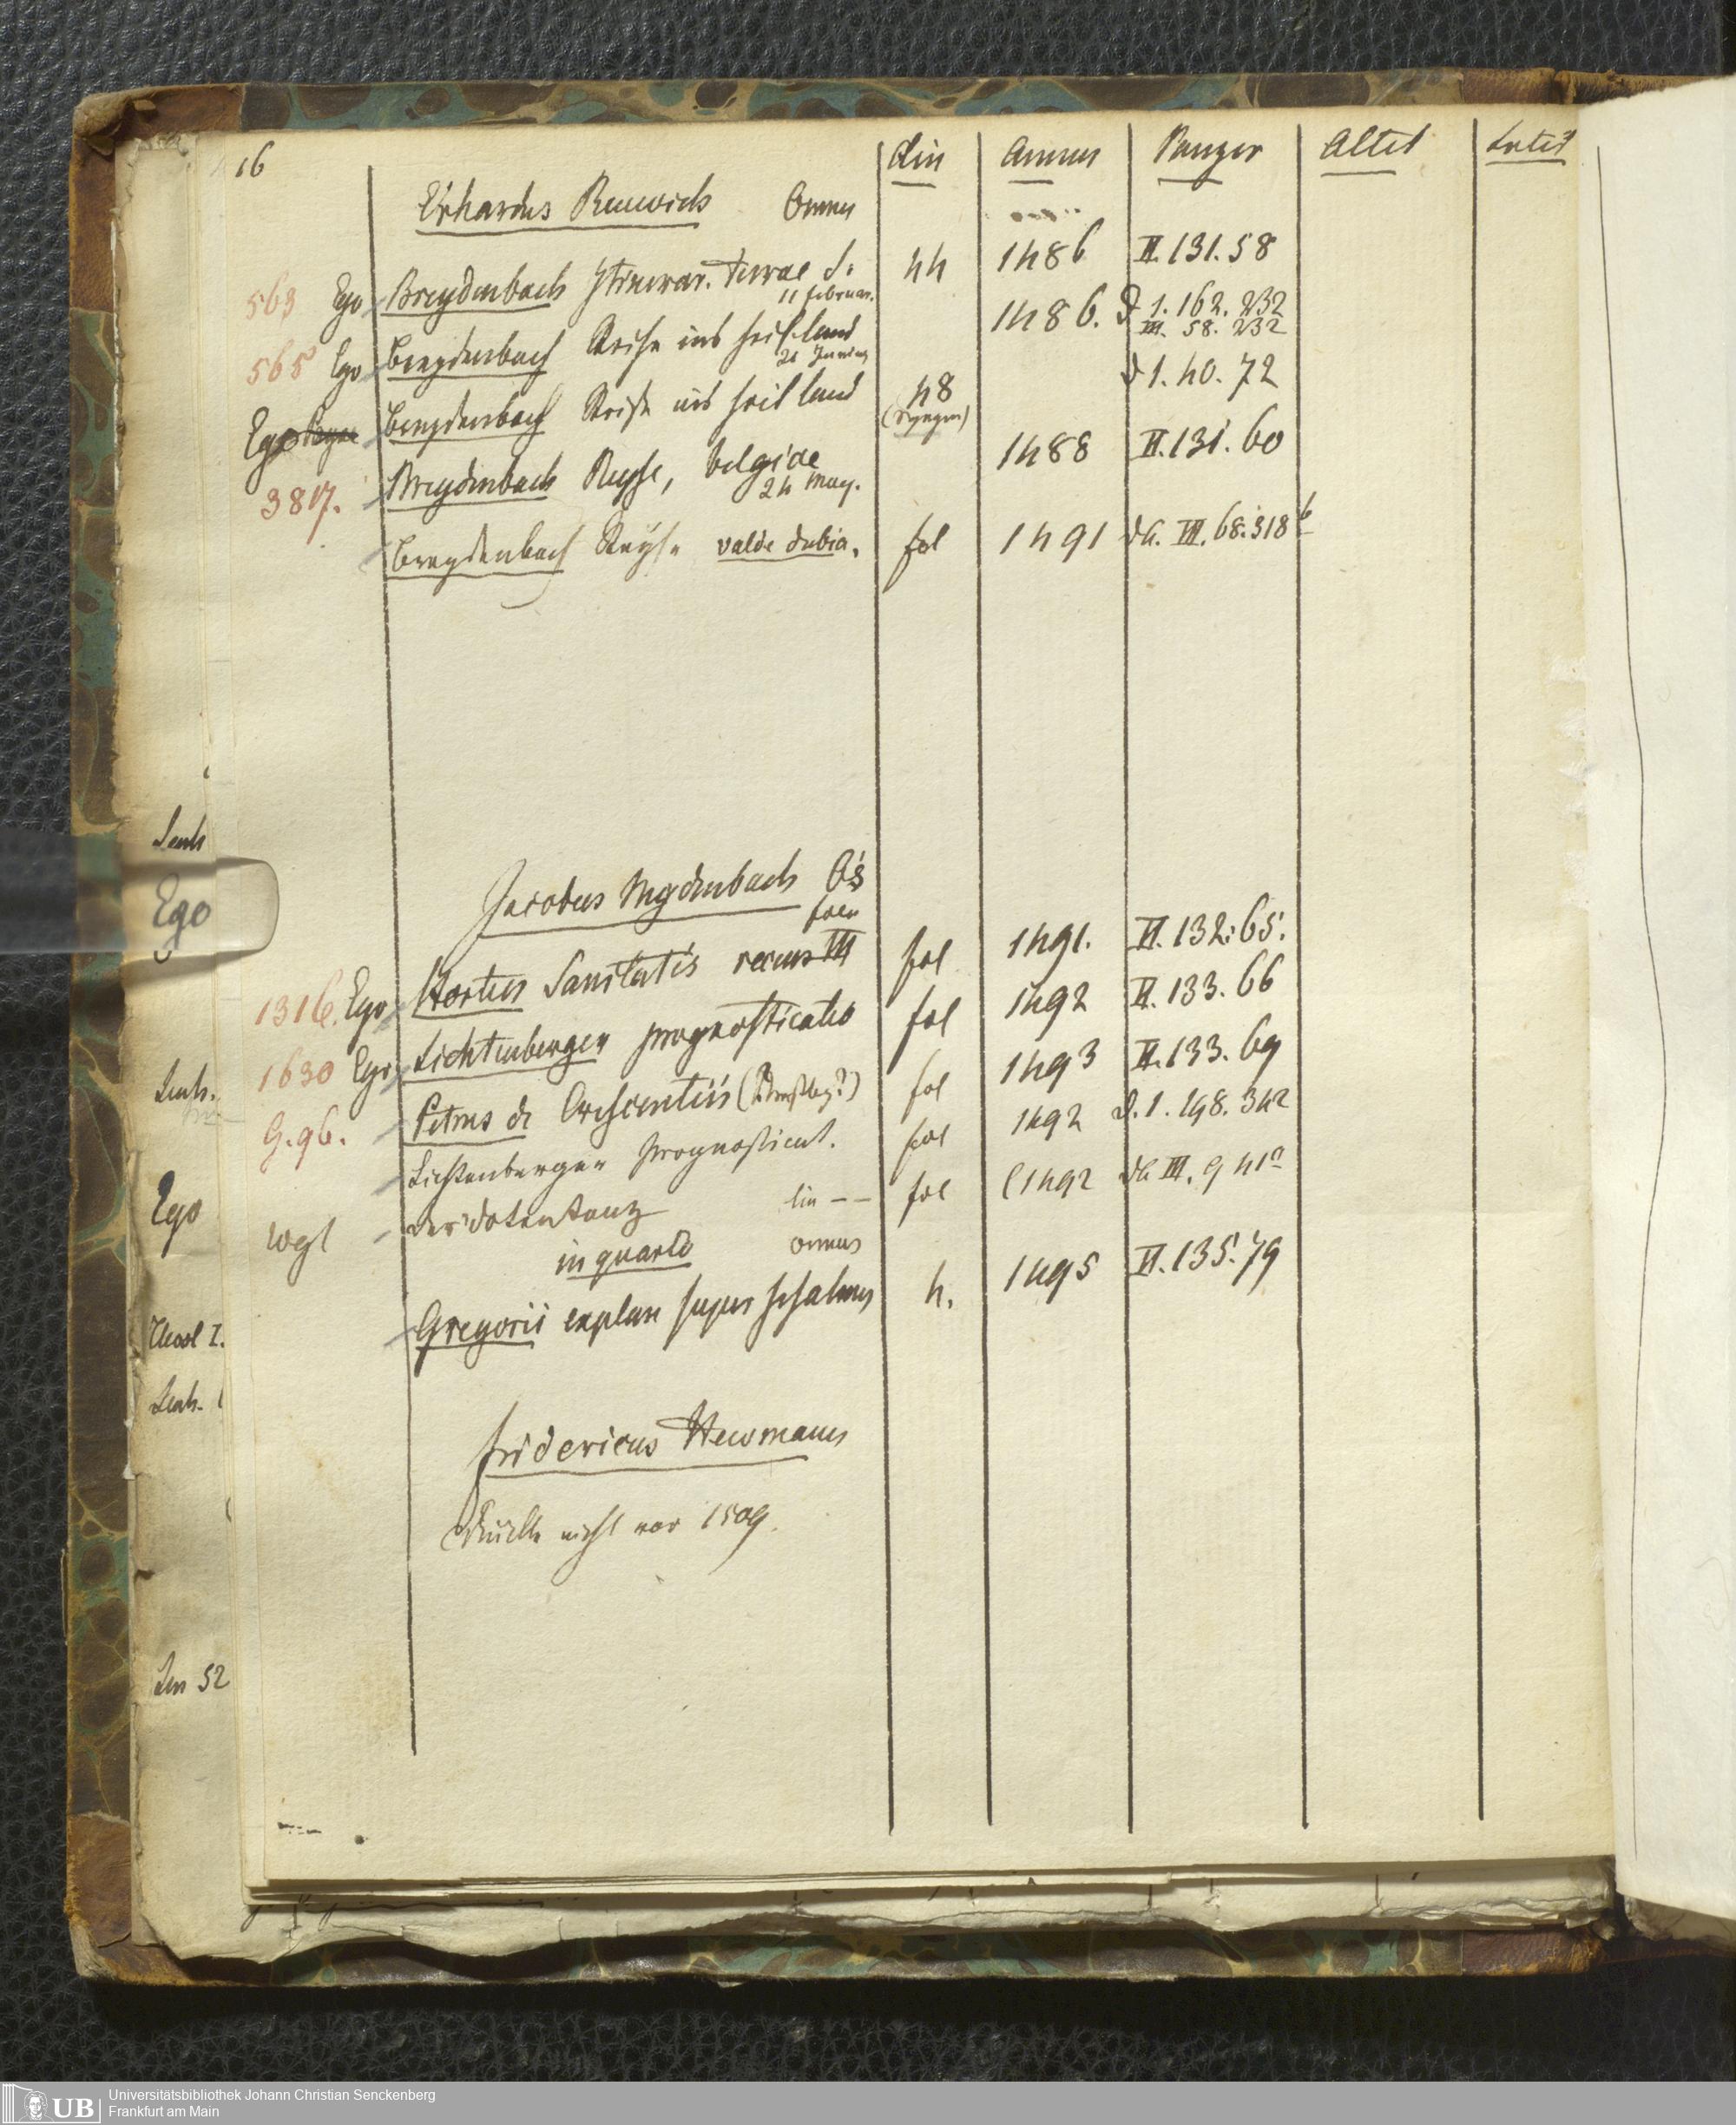 16 lin Annus Panzer Altit Latit
Erhardus Reuwich Omnes
563 Ego Breydenbach Itinerar. terrae S. 44 1486 II. 131. 58
11 februar.
565 Ego Breydenbach Reise ins heil land 1486. D 1. 162. 232
III. 58. 232
21 Junius
Ego Breydenbach Reise ins heil land 48 D 1. 40. 72
3817. Breydenbach Reyse, belgice 1488 II. 131. 60
24 May.
Breydenbach Reyse valde dubia. fol 1491 da. III. 68. 318 b
Jacobus Meydenbach
1316. Ego Hortus Sanitatis fol 1491. II. 132. 65.
1630 Ego Lichtenberger prognosticatio fol 1492 II. 133. 66
G. 96. Petrus de Crescentiis fol 1493 II. 133. 69
Lichtenberger prognosticat. fol 1492 D. 1. 198. 342
wgl der dotentanz lin -- fol 1492 da III. 9 41a
in quarto omnes
Gregorii explan super psalmos 4. 1495 II. 135. 79
fridericus Hewmann
druckte nicht vor 1509.
Ego
Senk.
Ego
Theol I.
Senk.
Sen 52
UB Universitätsbibliothek Johann Christian Senckenberg
Frankfurt am Main